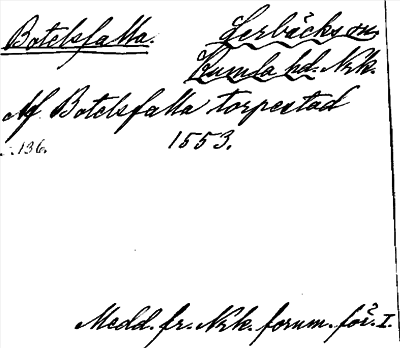 Botelsfalla. Lerbäcks sn.
Kumla hd. Nrk.
Af Botelsfalla torpestad
136. 1553.
Medd. fr. Nrk. fornm. för. I.